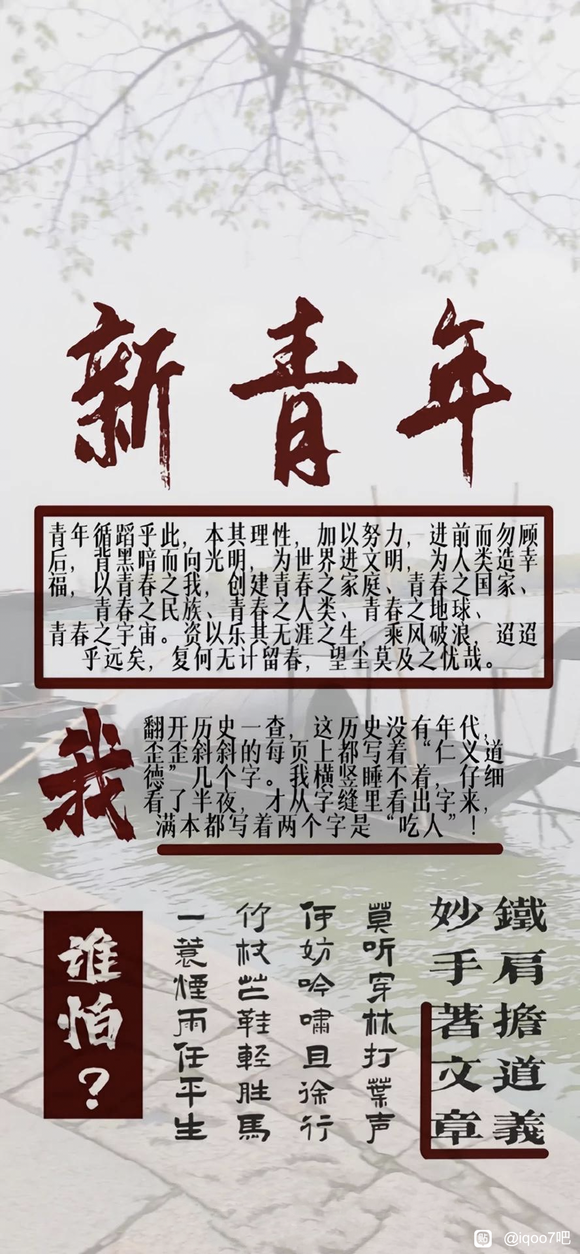 新青年
青年循蹈乎此，本其理性，加以努力，进前而勿顾
后，背黑暗而向光明，为世界进文明，为人类造幸
福，以青春之我，创建青春之家庭、青春之国家、
青春之民族、青春之人类、青春之地球、
青春之宇宙。资以乐其无涯之生，乘风破浪，迢迢
乎远矣，复何无计留春，望尘莫及之忧哉。
我
翻开历史一查，这历史没有年代，
歪歪斜斜的每页上都写着“仁义道
德”几个字。我横竖睡不着，仔细
看了半夜，才从字缝里看出字来，
满本都写着两个字是“吃人”！
鐵肩擔道義
妙手著文章
莫听穿林打葉声
何妨吟嘯且徐行
竹杖芒鞋輕胜馬
一蓑煙雨任平生
谁怕？
@iqoo7吧